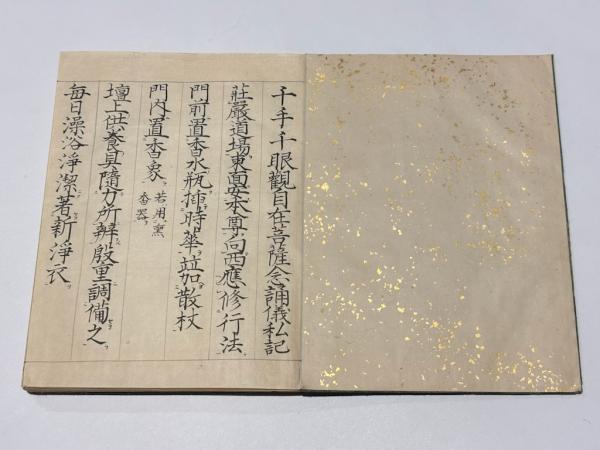 千手千眼觀自在菩薩念誦儀私記
莊嚴道場東面安本尊向西應修行法
門前置香水瓶挿時華並加散杖
門內置香象 若用熏
香器
壇上供養具隨力所辨殷重調備之
每日澡浴淨潔著新淨衣